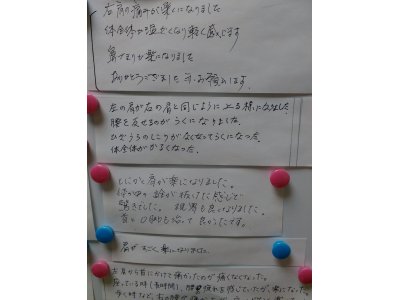 右肩の痛みが楽になりました
体全体が温かくなり軽く感じます
鼻づまりが楽になりました
ありがとうございました
左の肩が右の肩と同じように上る様になりました。
腰を反せるのがらくになりました。
ひざうらのしこりがなくなってらくになった。
体全体がかるくなった。
とにかく肩が楽になりました。
体の中の錘が抜けた感じで
驚きでした。視界も良くなりました。
首の も治って良かったです。
肩がすごく楽になりました。
左肩から首にかけて痛かったのが痛くなくなった。
座っている時(長時間)、腰 疲れを感じていたが、楽になった。
歩く時など、右の腰